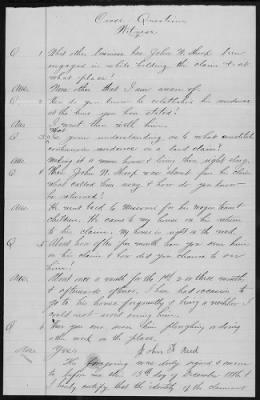 Cross Questions
Witness
Q 1 What other business has John W. Sharp been
engaged in while holding the claim & at
what place?
Ans None other that I am aware of.
Q 2 How do you know he established his residence
at the time you have stated?
Ans I went there with him.
Q 3 What is your understanding as to what constitutes
continuous residence on a land claim?
Ans making it a home house & living there right along.
Q 4 When John W. Sharp was absent from his claim
what called him away & how do you know
he returned?
Ans He went back to Missouri for his wagon team &
children. He came to my house on his return
to his claim, my house is right on the road.
Q 5 About how often per month have you seen him
on his claim & how did you chance to see
him?
Ans About once a month for the 1st 2 or three months,
& afterwards oftener. I have had occasion to
go to his house frequently & being a neighbor I
could not avoid seeing him.
Q 6 Have you ever seen him ploughing or doing
other work on the place.
Ans Yes. John F. Reed
The foregoing was duly signed & sworn
to before me this 13th day of December 1886 &
I hereby certify that the identity of the claimant